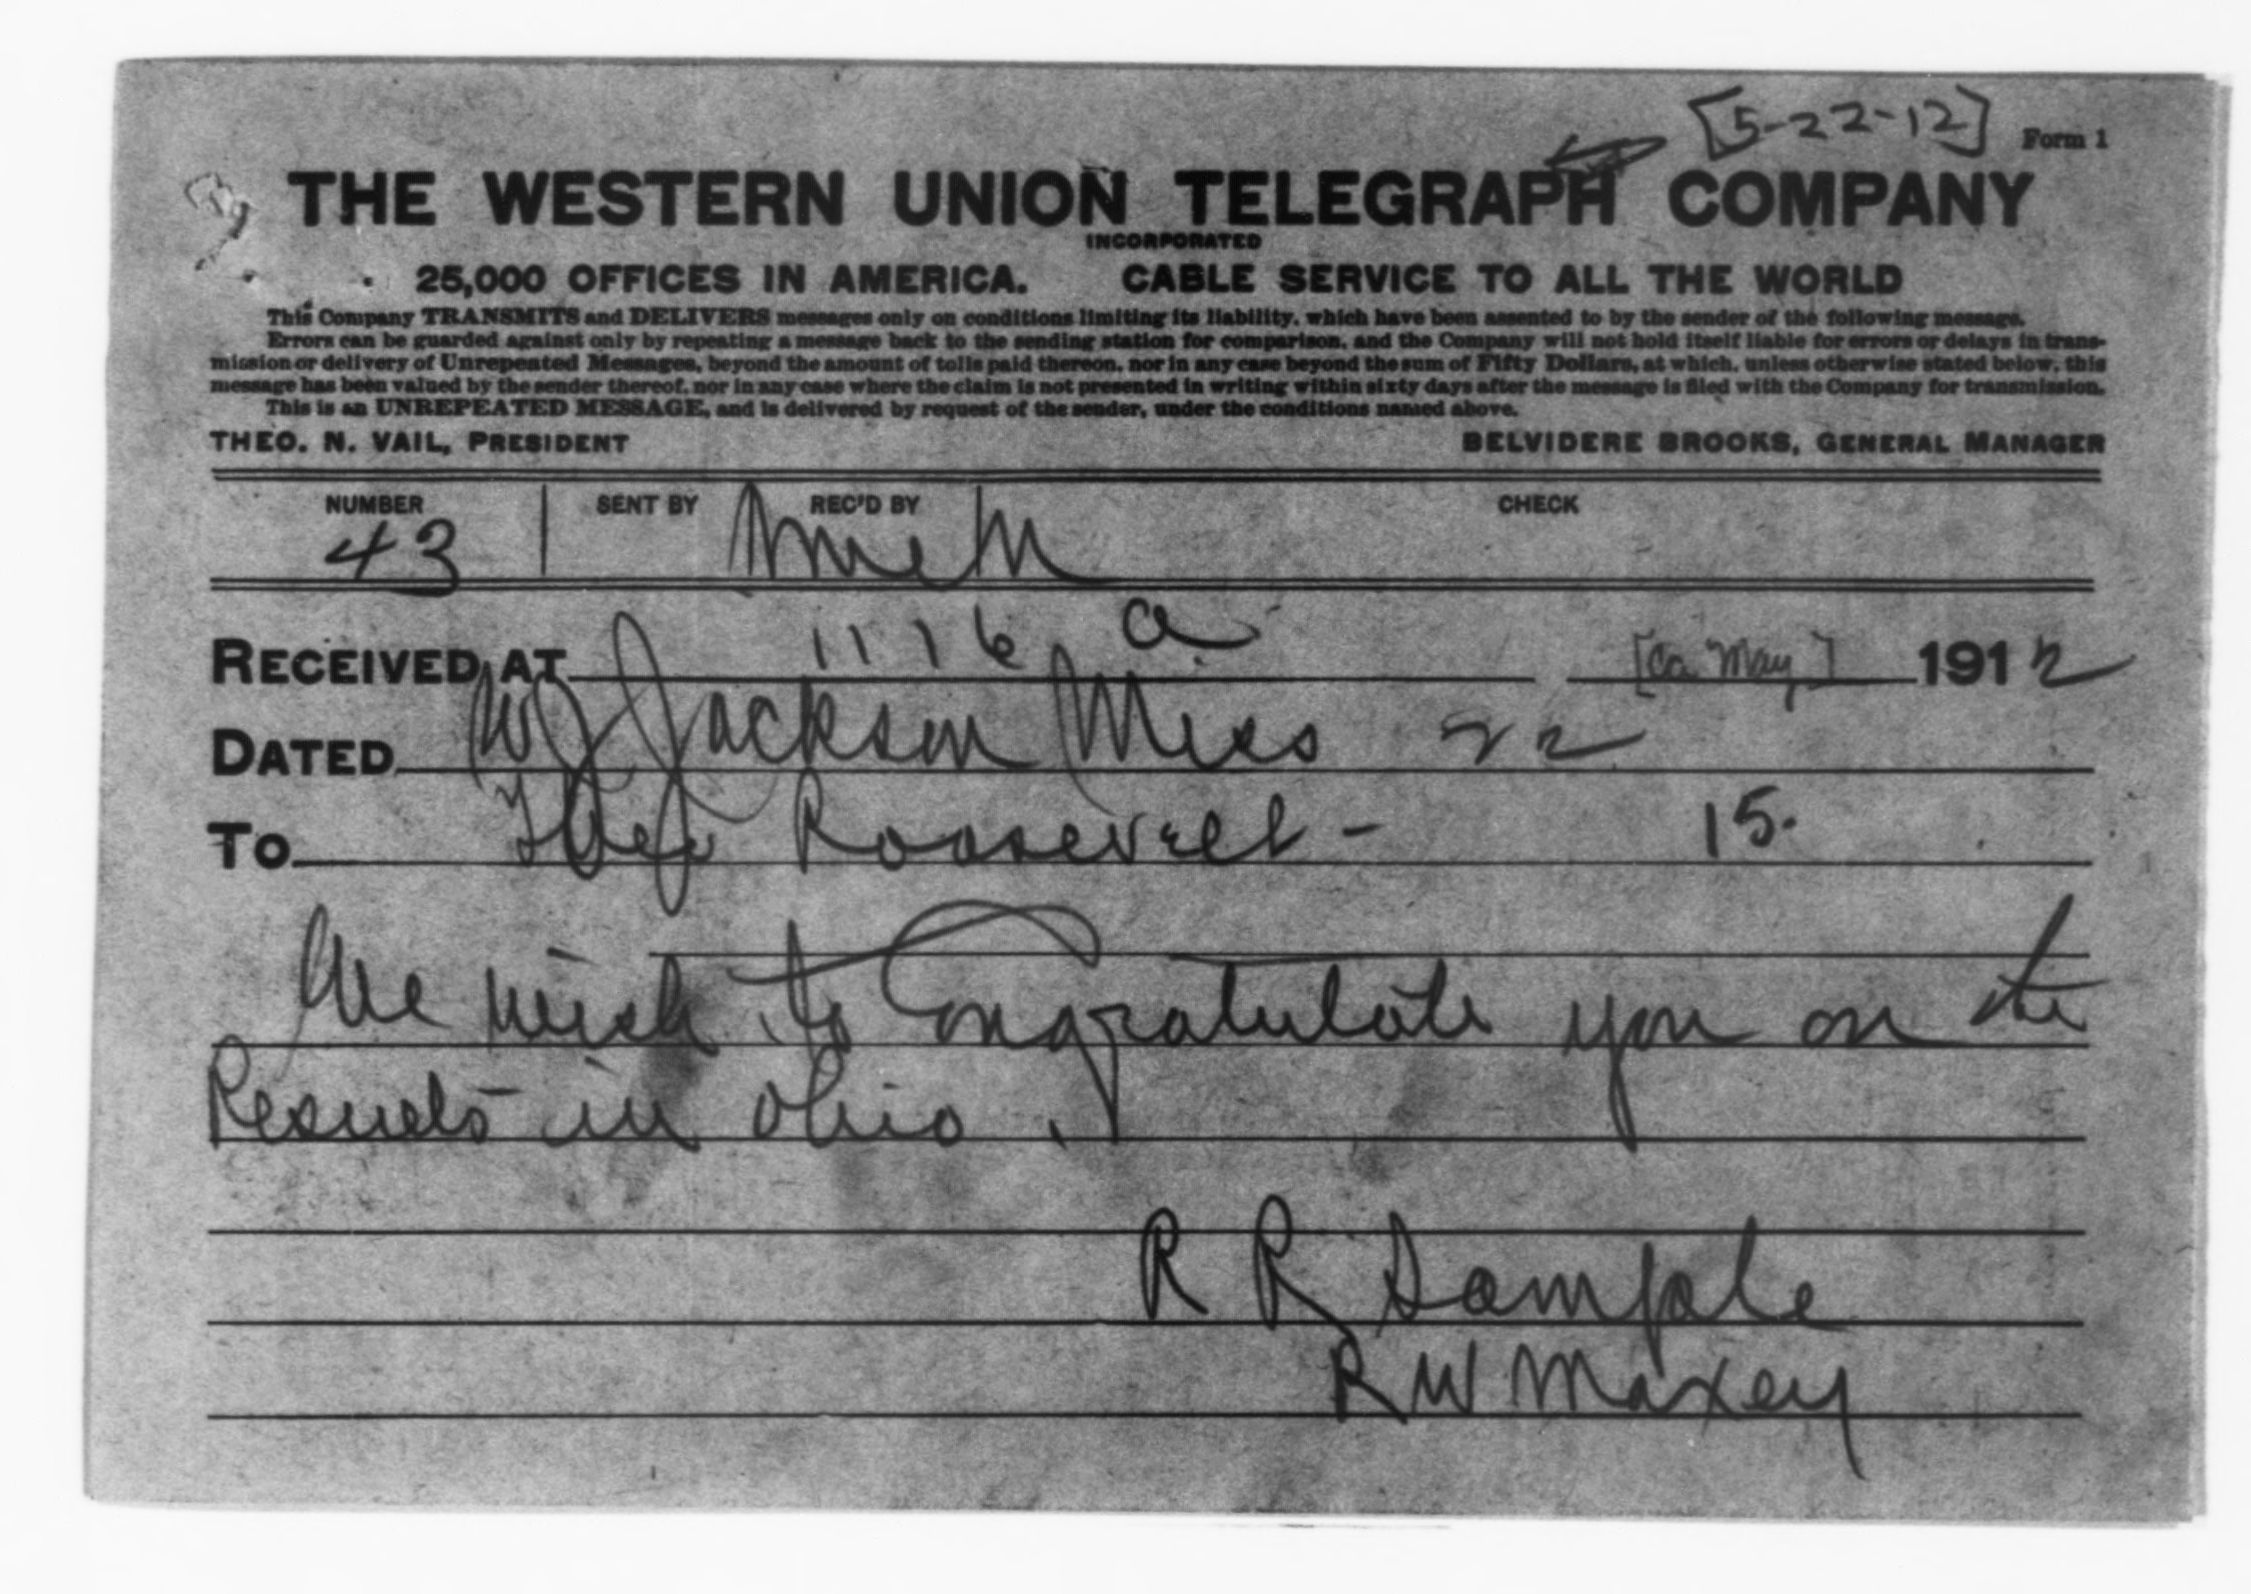 [5-22-12] Form 1
THE WESTERN UNION TELEGRAPH COMPANY
INCORPORATED
25,000 OFFICES IN AMERICA. CABLE SERVICE TO ALL THE WORLD
This Company TRANSMITS and DELIVERS messages only on conditions limiting its liability, which have been assented to by the sender of the following message.
Errors can be guarded against only by repeating a message back to the sending station for comparison, and the Company will not hold itself liable for errors or delays in trans-
mission or delivery of Unrepeated Messages, beyond the amount of tolls paid thereon, nor in any case beyond the sum of Fifty Dollars, at which, unless otherwise stated below, this
message has been valued by the sender thereof, nor in any case where the claim is not presented in writing within sixty days after the message is filed with the Company for transmission.
This is an UNREPEATED MESSAGE, and is delivered by request of the sender, under the conditions named above.
THEO. N. VAIL, PRESIDENT BELVIDERE BROOKS, GENERAL MANAGER
NUMBER SENT BY REC'D BY CHECK
43
RECEIVED AT 1116 a [ca. May] 1912
DATED Jackson Miss 22
To Theo Roosevelt - 15.
We wish to Congratulate you on the
Results in Ohio.
R R Sample
R W Maxey